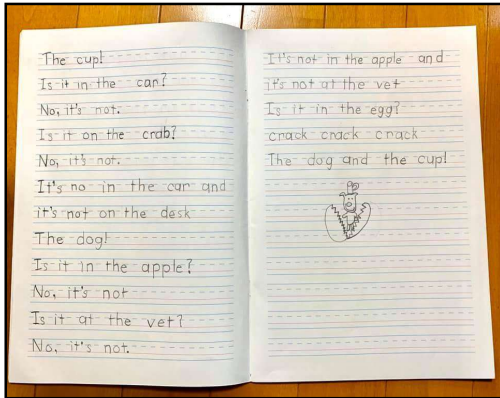 The cup!
Is it in the car?
No, it's not.
Is it on the crab?
No, it's not.
It's no in the car and
it's not on the desk
The dog!
Is it in the apple?
No, it's not
Is it at the vet?
No, it's not.
It's not in the apple and
it's not at the vet
Is it in the egg?
crack crack crack
The dog and the cup!